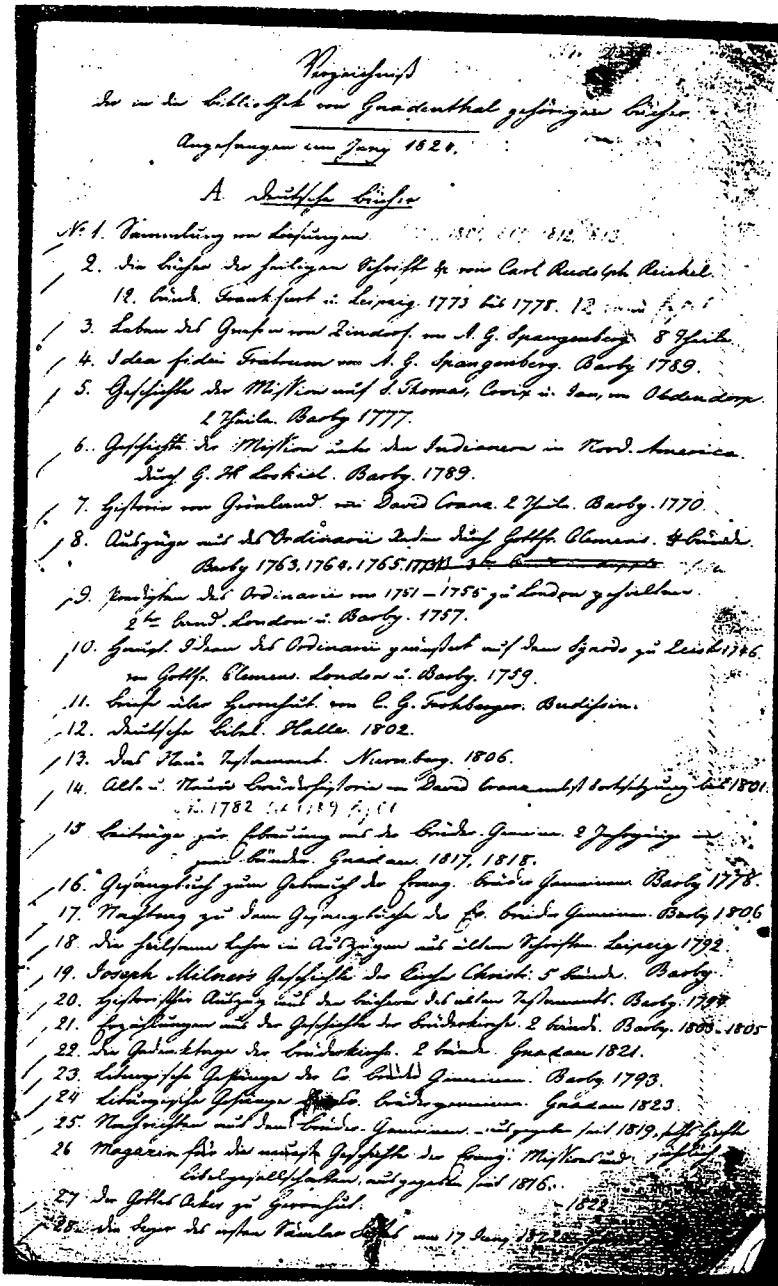 Verzeichniß
der in die Bibliothek von Gnadenthal gehörigen Bücher
Angefangen im Jany 1824.
A. Deutsche Bücher
No 1. Sammlung von Loosungen 1812. 1813
2. Die Bücher der heiligen Schrift von Carl Rudolph Reichel.
12. Bände. Frankfurt u. Leipzig. 1773 bis 1778. 12
3. Leben des Grafen von Zinzdorf. von A. G. Spangenberg. 8 Theile
4. Idea fidei Fratrum von A. G. Spangenberg. Barby 1789.
5. Geschichte der Mission auf S. Thomas, Croix u. Jan, von Oldendorp.
2 Theile. Barby 1777.
6. Geschichte der Mission unter den Indianern in Nord-America.
durch G. H. Loskiel. Barby. 1789.
7. Historie von Grönland. von David Cranz. 2 Theile. Barby. 1770.
8. Auszüge aus des Ordinarii Reden durch Gottfr. Clemens. 4 Bände.
Barby 1763. 1764. 1765.
9. Predigten des Ordinarii von 1751–1755 zu London gehalten
2ter Band. London u. Barby. 1757.
10. Haupt-Ideen des Ordinarii geäussert auf dem Synodo zu Zeist 1746.
von Gottfr. Clemen. London u. Barby. 1759.
11. Briefe über Herrnhut. von C. G. Frohberger. Budissin.
12. Deutsche Bibel. Halle. 1802.
13. Das Neue Testament. Nurnberg. 1806.
14. Alte u. Neuere Brüderhistorie von David Cranz nebst Fortsetzung bis 1801.
1782
15. Beiträge zur Erbauung aus der Brüder-Gemeine. 2 Jahrgänge in
zwei Bänden. Gnadau. 1817, 1818.
16. Gesangbuch zum Gebrauch der Evang. Brüder Gemeinen. Barby 1778.
17. Nachtrag zu dem Gesangbuche der Ev. Brüder Gemeinen. Barby 1806
18. Die heilsame Lehre in Auszügen aus ältern Schriften. Leipzig 1792
19. Joseph Milners Geschichte der Kirche Christi. 5 Bände. Barby.
20. Historischer Auszug aus den Büchern des alten Testaments. Barby.
21. Erzählungen aus der Geschichte der Brüderkirche. 2 Bände. Barby. 1803–1805
22. Die Gedenktage der Brüderkirche. 2 Bände. Gnadau 1821.
23. Liturgische Gesänge der Ev. Brüder Gemeinen. Barby. 1793.
24. Liturgische Gesänge Brüdergemeinen. Gnadau 1823.
25. Nachrichten aus dem Brüder-Gemeinen. ausgegeben seit 1819.
26 Magazin für die neueste Geschichte der Evang. Missions und
Bibelgesellschaften, ausgegeben seit 1816.
27. Der Gottes Acker zu Herrnhut. 1822
28. Die Feyer des ersten vom 17 Juny 1822